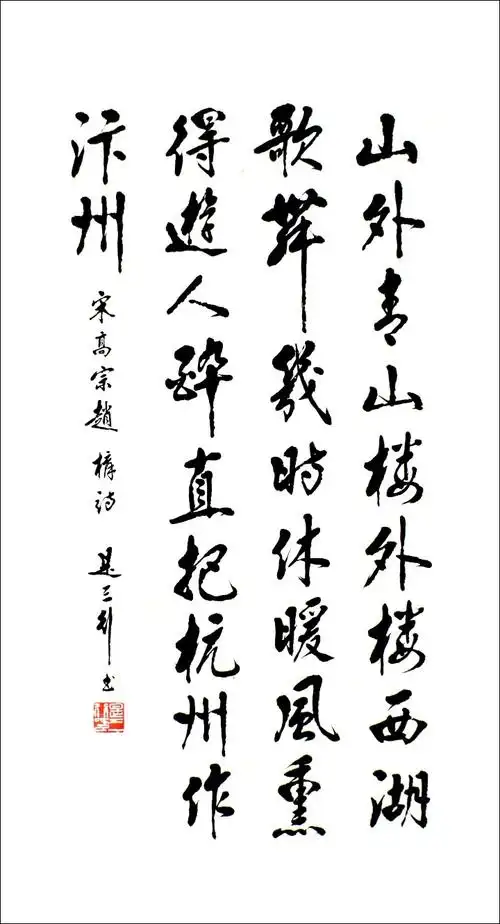 山外青山楼外楼西湖
歌舞幾時休暖風熏
得遊人醉直把杭州作
汴州
宋高宗趙構詩 是三書